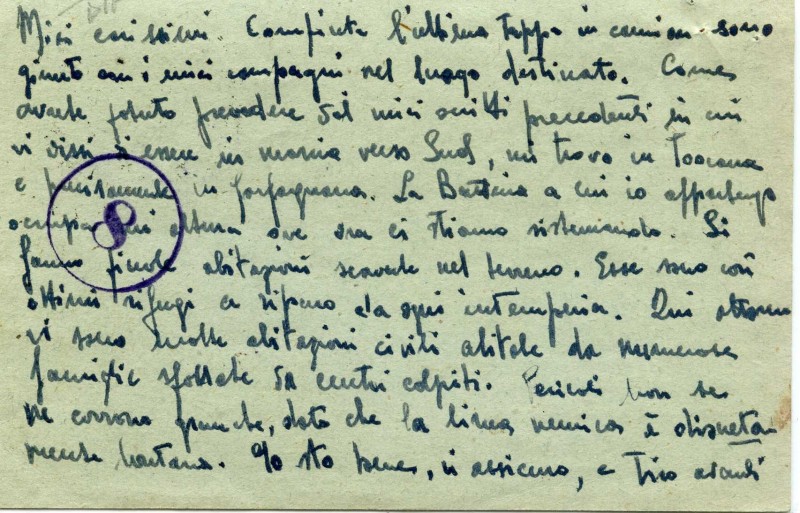 Miei carissimi. Compiuta l'ultima tappa in camion sono
giunto con i miei compagni nel luogo destinato. Come
avrete potuto prevedere dai miei scritti precedenti in cui
vi dissi di essere in marcia verso Sud, mi trovo in Toscana
e precisamente in Garfagnana. La Batteria a cui io appartengo
occupa altura ove ora ci stiamo sistemando. Si
fanno piccole abitazioni scavate nel terreno. Esse sono così
ottimi rifugi e riparo da ogni intemperia. Qui attorno
vi sono molte abitazioni civili abitate da numerose
famiglie sfollate da centri colpiti. Pericoli non se
ne corrono granche, dato che la linea nemica è discreta
mente lontana. Io sto bene, vi assicuro, e tiro avanti
8